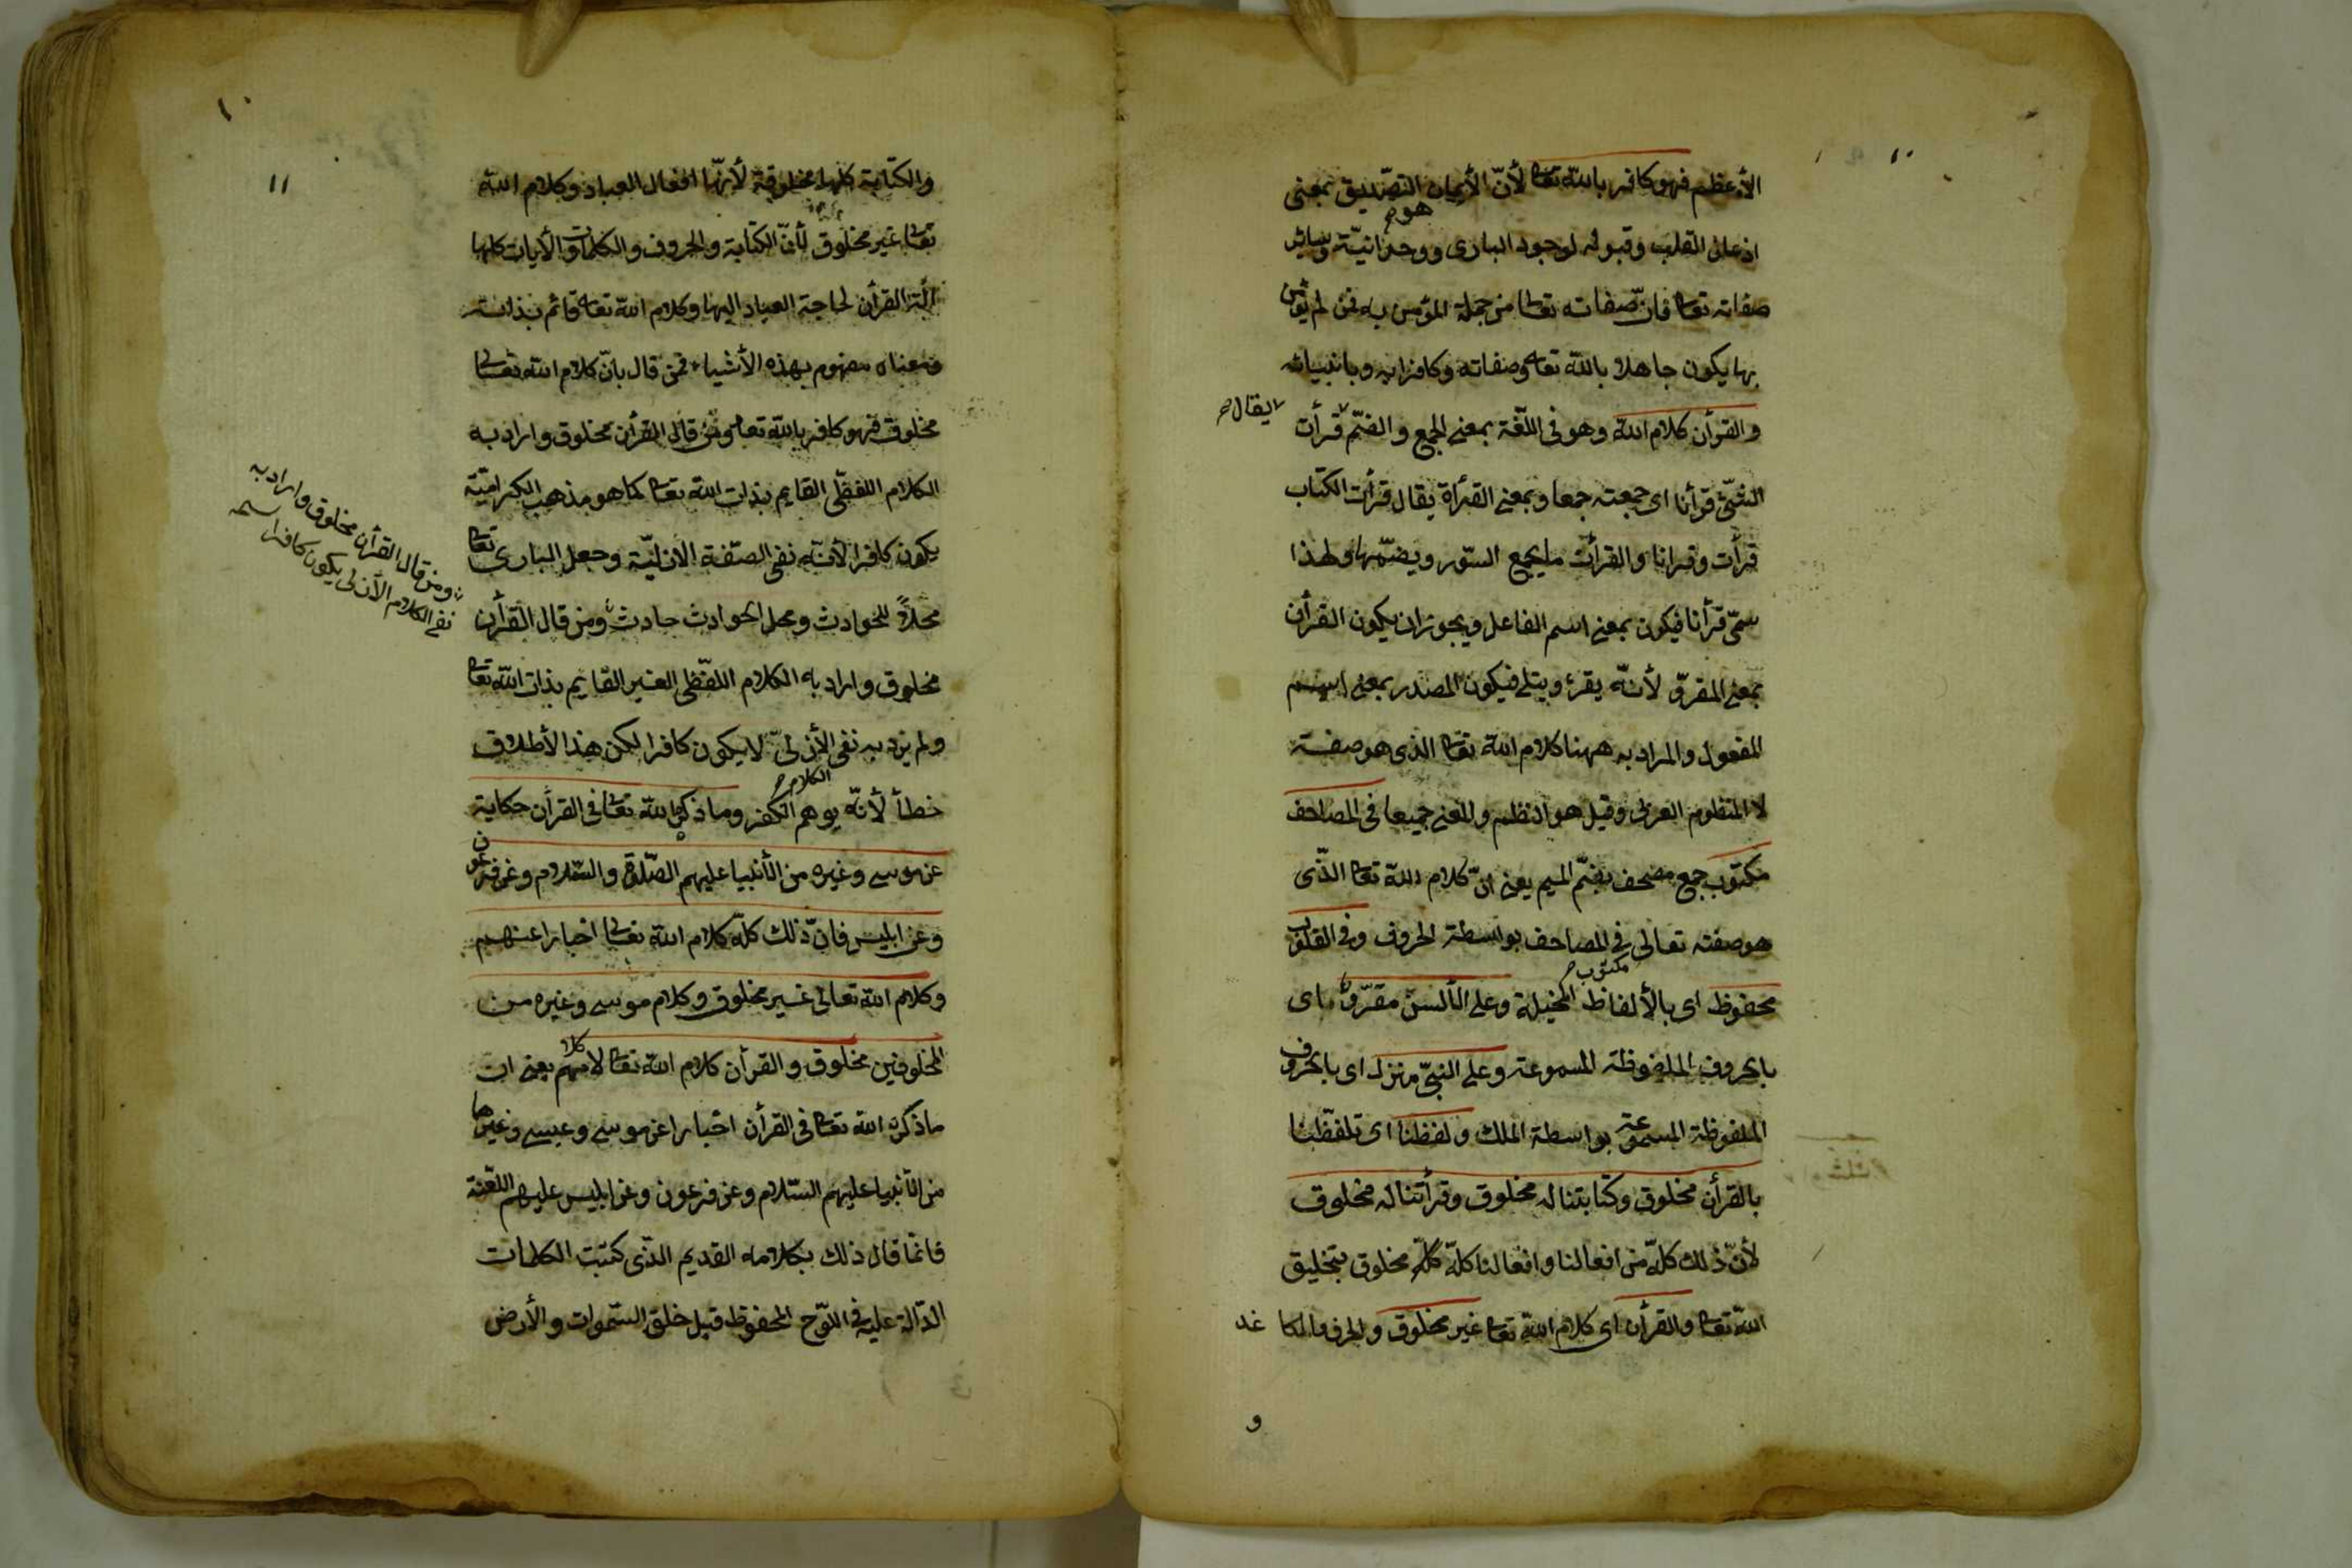 ١٠
الأعظم فهو كافر بالله تعا لأنّ الأيمان التصّديق بمعنى
هو
اذعان القلب وقبوله لوجود البارى ووحدانيّة وساير
صفاته تعا فانّ صفاته تعا من جملة المؤمن به فمن لم يؤمن
بها يكون جاهلا بالله تعا وصفاته وكافرا به وبانبيائه
والقرأن كلام الله وهو فى اللّغة بمعنى الجمع والضّم قرأت
يقال
الشّئ قرأنا اى جمعته جمعا وبمعنى القرأة يقال قرأت الكتاب
قرأت وقرانا والقرأن ما يجمع السّور ويضمّها ولهذا
سمّى قرأنا فيكون بمعنى اسم الفاعل ويجوز ان يكون القرأن
بمعنى المقروّ لأنّه يقرئ ويتلى فيكون المصدر بمعنى اسم
المفعول والمراد به ههنا كلام الله تعا الذى هو صفته
لا المنظوم العربى وقيل هو النظم والمعنى جميعا فى المصاحف
مكتوب جمع مصحف بضمّ الميم يعنى انّ كلام الله تعا الذّى
هو صفته تعالى فى المصاحف بواسطة الحروف وفى القلوب
مكتوب
محفوظ اى بالألفاظ المخيلة وعلى الألسن مقرّو اى
بالحروف الملفوظة المسموعة وعلى النبىّ منزل اى بالحروف
الملفوظة المسموعة بواسطة الملك ولفظنا اى تلفّظنا
بالقرأن مخلوق وكتابتنا له مخلوق وقرأتنا له مخلوق
لأنّ ذلك كلّه من افعالنا وافعالنا كلّه كلّه مخلوق بتخليق
الله تعا والقرأن اى كلام الله تعا غير مخلوق والحرف والكاغد
و
١٠
١١
والكتابة كلها مخلوقة لأنّها افعال العباد وكلام الله
تعا غير مخلوق لأنّ الكتابة والحروف والكلمات والأيات كلها
الة القرأن لحاجة العباد اليها وكلام الله تعا قائم بذاته
ومعناه مفهوم بهذه الأشياء فمن قال بانّ كلام الله تعالى
مخلوق فهو كافر بالله تعا ومن قال القرأن مخلوق واراد به
الكلام اللفظّى القايم بذات الله تعا كما هو مذهب الكرامّية
يكون كافرا لأنّه نفى الصّفة الازليّة وجعل البارى تعا
محلاً للحوادث ومحل الحوادث حادث ومن قال القرأن
ومن قال القرأن مخلوق واراد به
نفى الكلام الأزلى يكون كافرا
مخلوق واراد به الكلام اللفّظى الغير القايم بذات الله تعا
ولم يرد به نفى الأزلىّ لا يكون كافرا لكن هذا الأطلاق
الكلام
خطأ لأنّه يوهم الكفر وما ذكر الله تعا فى القرأن حكاية
عن موسى وغيره من الأنبيا عليهم الصّلوة والسّلام وعن فرعون
وعن ابليس فانّ ذلك كلّه كلام الله تعالى اخبارا عنهم
وكلام الله تعالى غير مخلوق وكلام موسى وغيره من
المخلوقين مخلوق والقرأن كلام الله تعا لا كلامهم يعنى ان
ما ذكره الله تعا فى القرأن اخبارا عن موسى وعيسى وغيرهما
من الأنبيا عليهم السّلام وعن فرعون وعن ابليس عليهم اللعّنة
فانمّا قال ذلك بكلامه القديم الذّى كتبت الكلمات
الدّالة عليه فى اللّوح المحفوظ قبل خلق السّموات والأرض